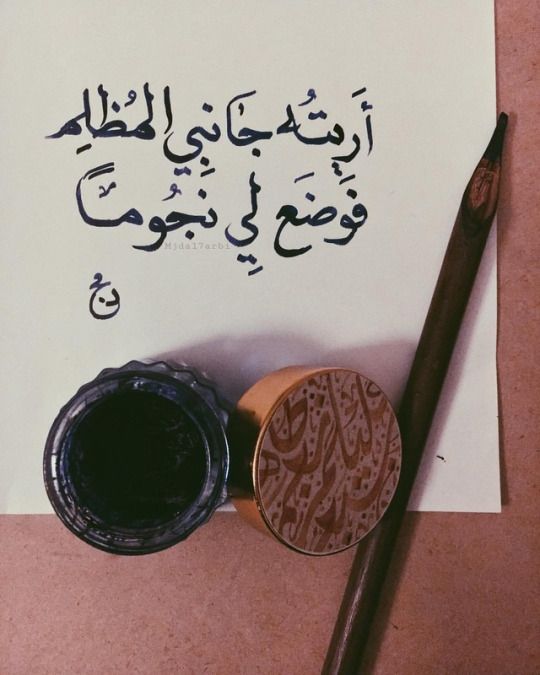 أَريتُه جَانِبِي المُظلِم
فَوضَع لِي نجُوماً
Mjdal7arbi